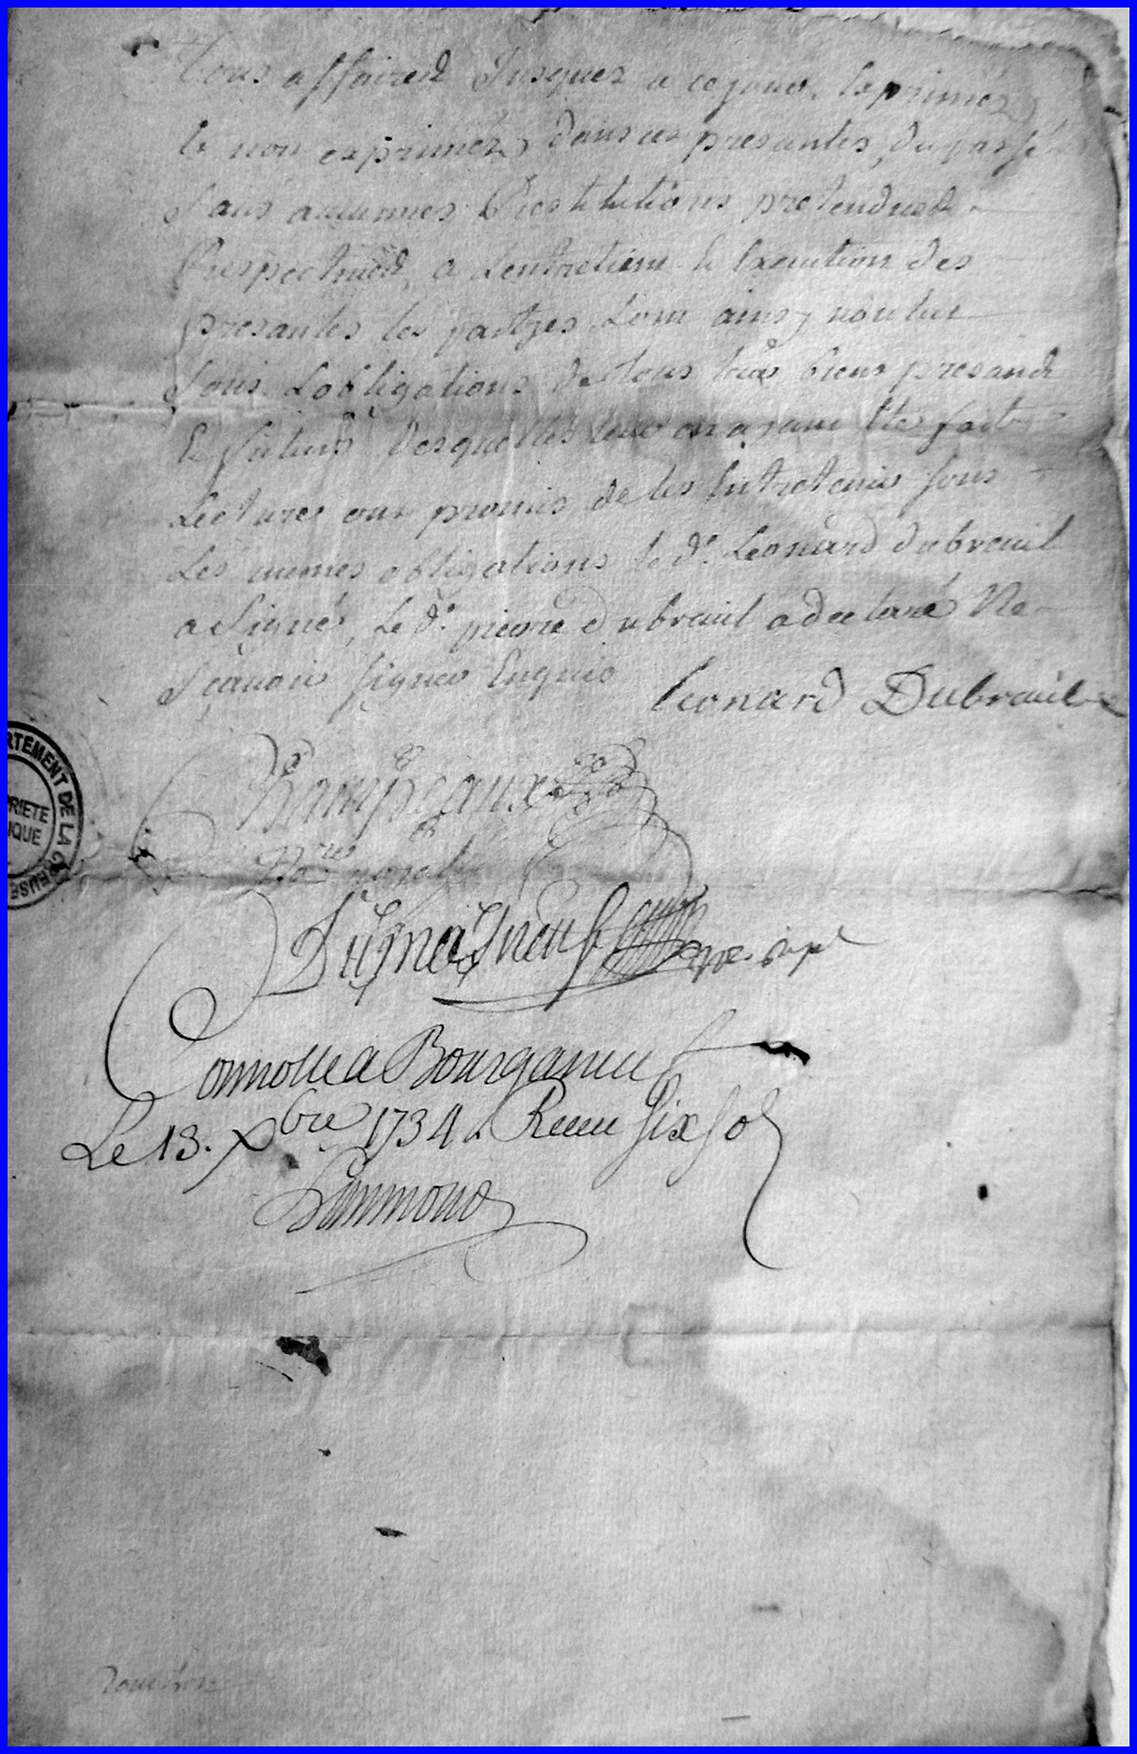 tous affaires Jusques a ce jour, Exprimés
Et non exprimés dans ces presantes, du passé
sans aucunnes Restitutions pretendues
Respectives, a Lentretien Et Execution des
presantes les partyes L'ont ainsy voulu
sous Lobligations de tous biens presands
Et futurs desquelles Leur en ayant Eté fait
Lecture ont promis de les Entretenir sous
Les mesmes obligations le d. Leonard dubreuil
a signé, Le d. pierre dubreuil a declaré Ne
sçavoir signer Enquis
Leonard Dubreuil
Champeaux
Nore royal
Dumasneuf
Conrolle a Bourganeuf
Le 13. Xbre 1734 Receu six sol
RTEMENT DE LA CREUSE
PRIETE
IQUE